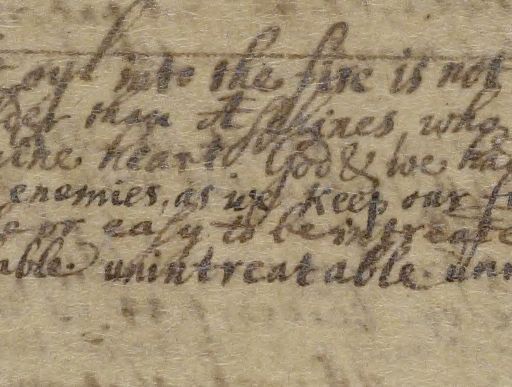 oyl into the fire is not
der then Æschines who
ine heart God & we ha
enemies, as we keep our fr
e or easy to be intreate
able. unintreatable. un